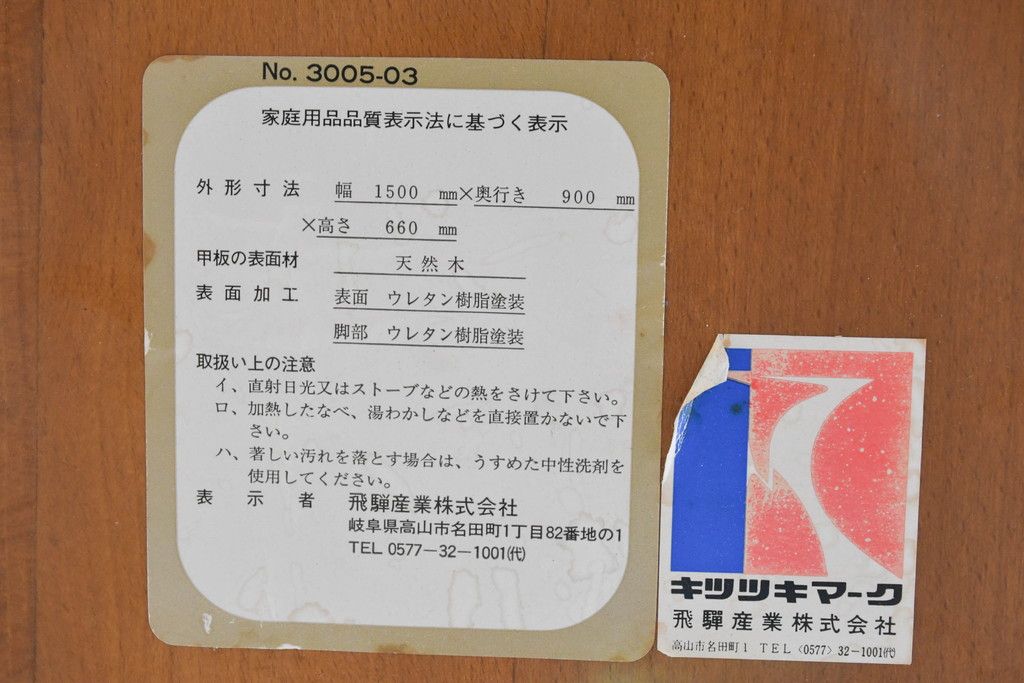 No. 3005-03
家庭用品品質表示法に基づく表示
外形寸法 幅 1500 mm×奥行き 900 mm
×高さ 660 mm
甲板の表面材 天然木
表面加工 表面 ウレタン樹脂塗装
脚部 ウレタン樹脂塗装
取扱い上の注意
イ、直射日光又はストーブなどの熱をさけて下さい。
ロ、加熱したなべ、湯わかしなどを直接置かないで下
さい。
ハ、著しい汚れを落とす場合は、うすめた中性洗剤を
使用してください。
表示者 飛騨産業株式会社
岐阜県高山市名田町1丁目82番地の1
TEL 0577-32-1001㈹
キツツキマーク
飛驒産業株式会社
高山市名田町1 TEL〈0577〉32-1001㈹